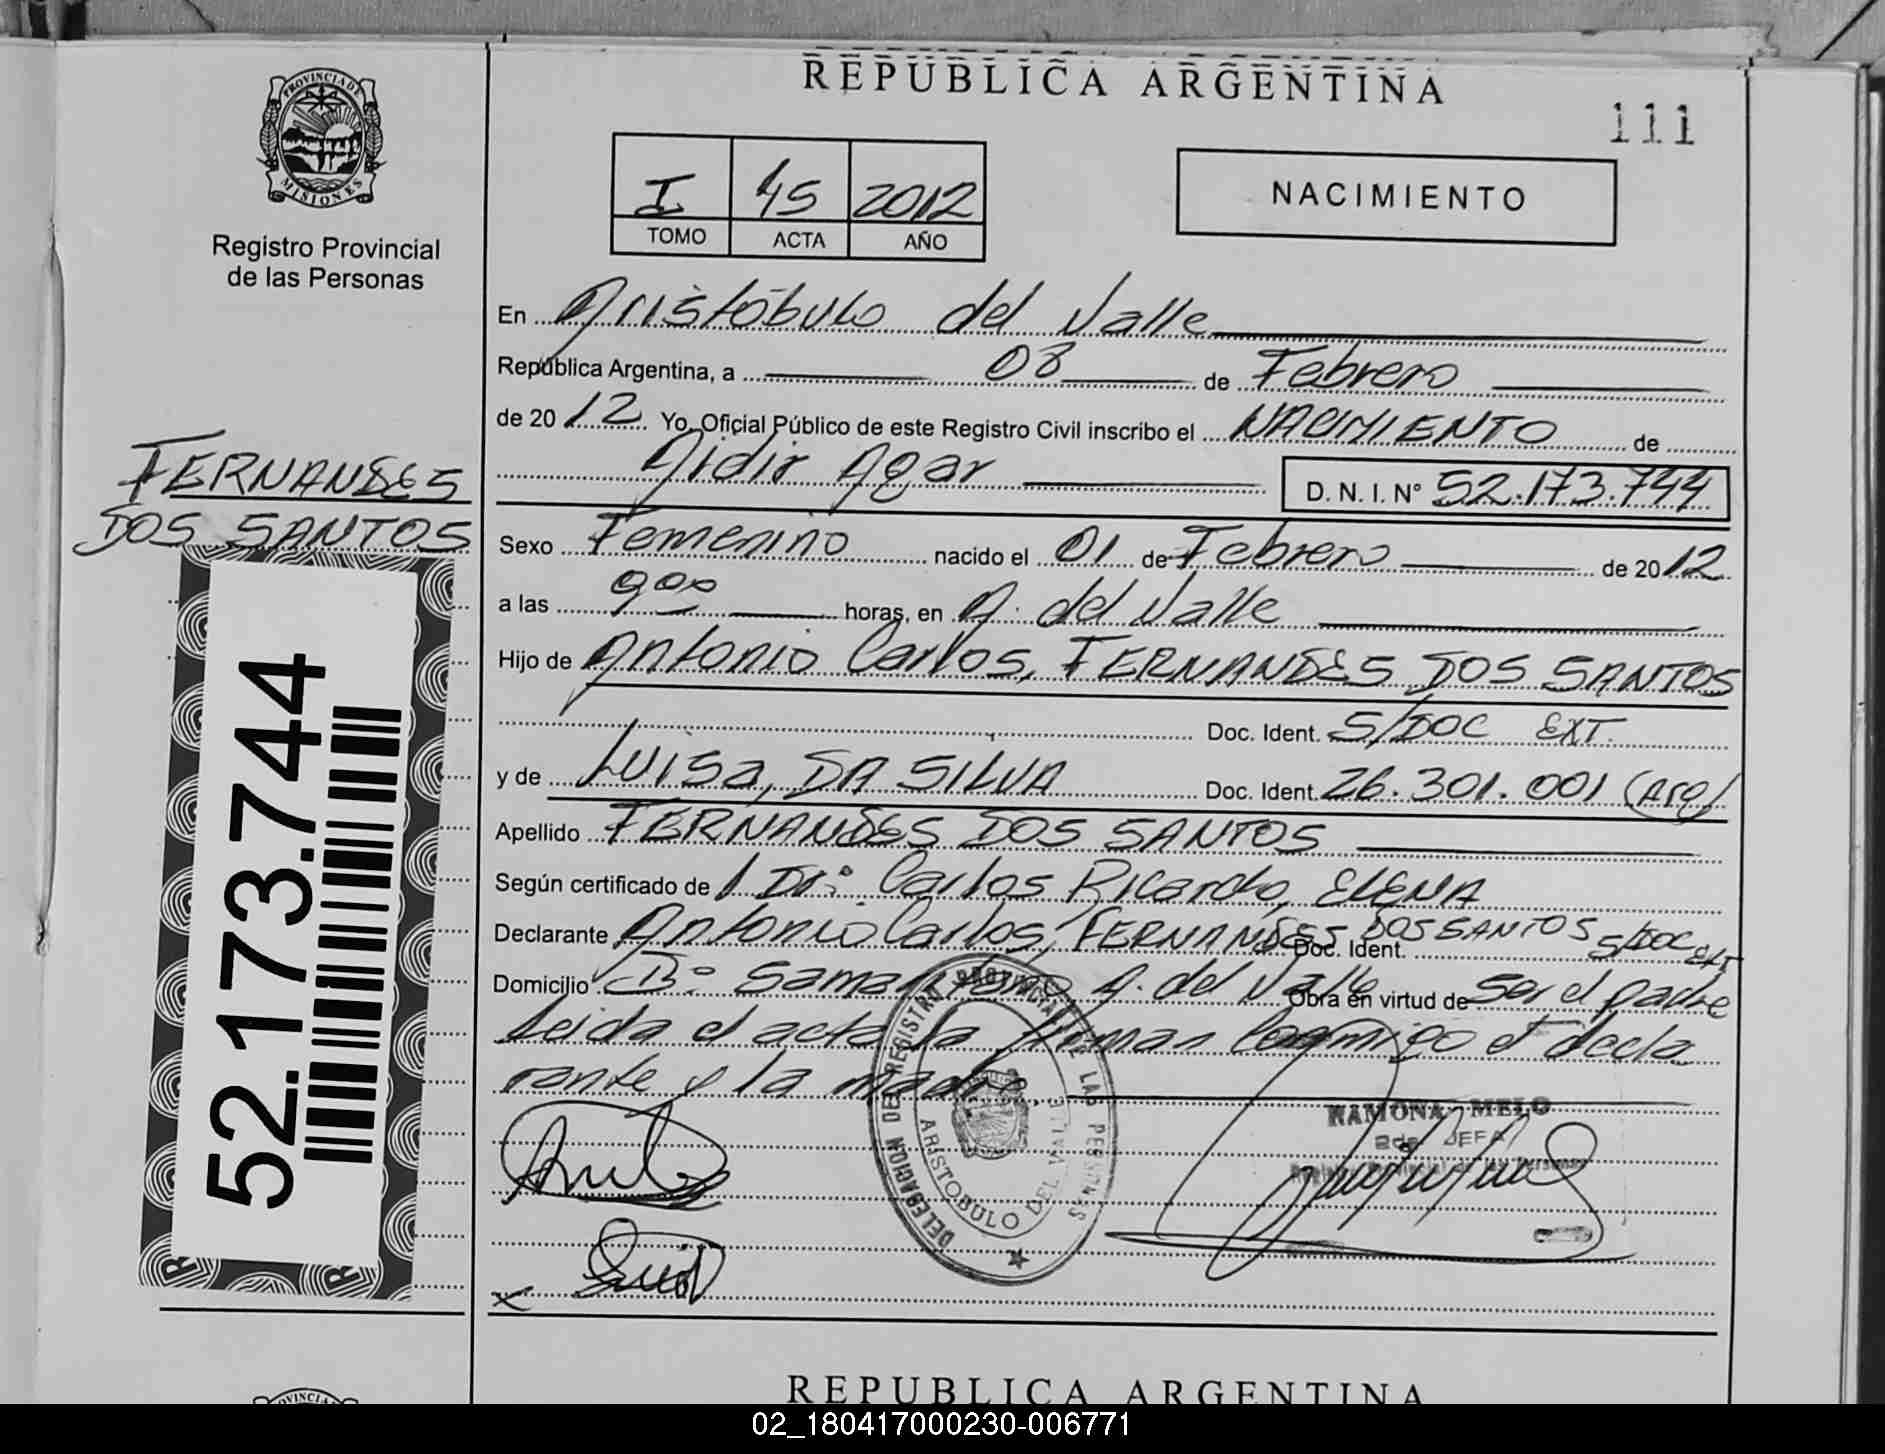 REPUBLICA ARGENTINA
111
PROVINCIA DE
MISIONES
Registro Provincial
de las Personas
I 45 2012
TOMO ACTA AÑO
NACIMIENTO
En Aristóbulo del Valle
República Argentina, a 08 de Febrero
de 2012 Yo, Oficial Público de este Registro Civil inscribo el NACIMIENTO de
Agar
D. N. I. Nº 52.173.744
FERNANDES
DOS SANTOS
Sexo Femenino nacido el 01 de Febrero de 2012
a las 9 00 horas, en A. del Valle
Hijo de Antonio Carlos, FERNANDES DOS SANTOS
Doc. Ident. S/DOC EXT.
y de Luisa, DA SILVA Doc. Ident. 26.301.001 (Arg)
Apellido FERNANDES DOS SANTOS
Según certificado de Dr: Carlos Ricardo, ELENA
Declarante Antonio Carlos, FERNANDES DOS SANTOS Doc. Ident. S/DOC EXT
Domicilio Bº A. del Valle Obra en virtud de Ser el padre
Leida el acta la firman conmigo el decla
rante y la madre.
52.173.744
DELEGACION DEL REGISTRO PROVINCIAL DE LAS PERSONAS
ARISTOBULO DEL VALLE
RAMONA MELO
2da JEFA
Registro Provincial de las Personas
x
REPUBLICA ARGENTINA
02_180417000230-006771